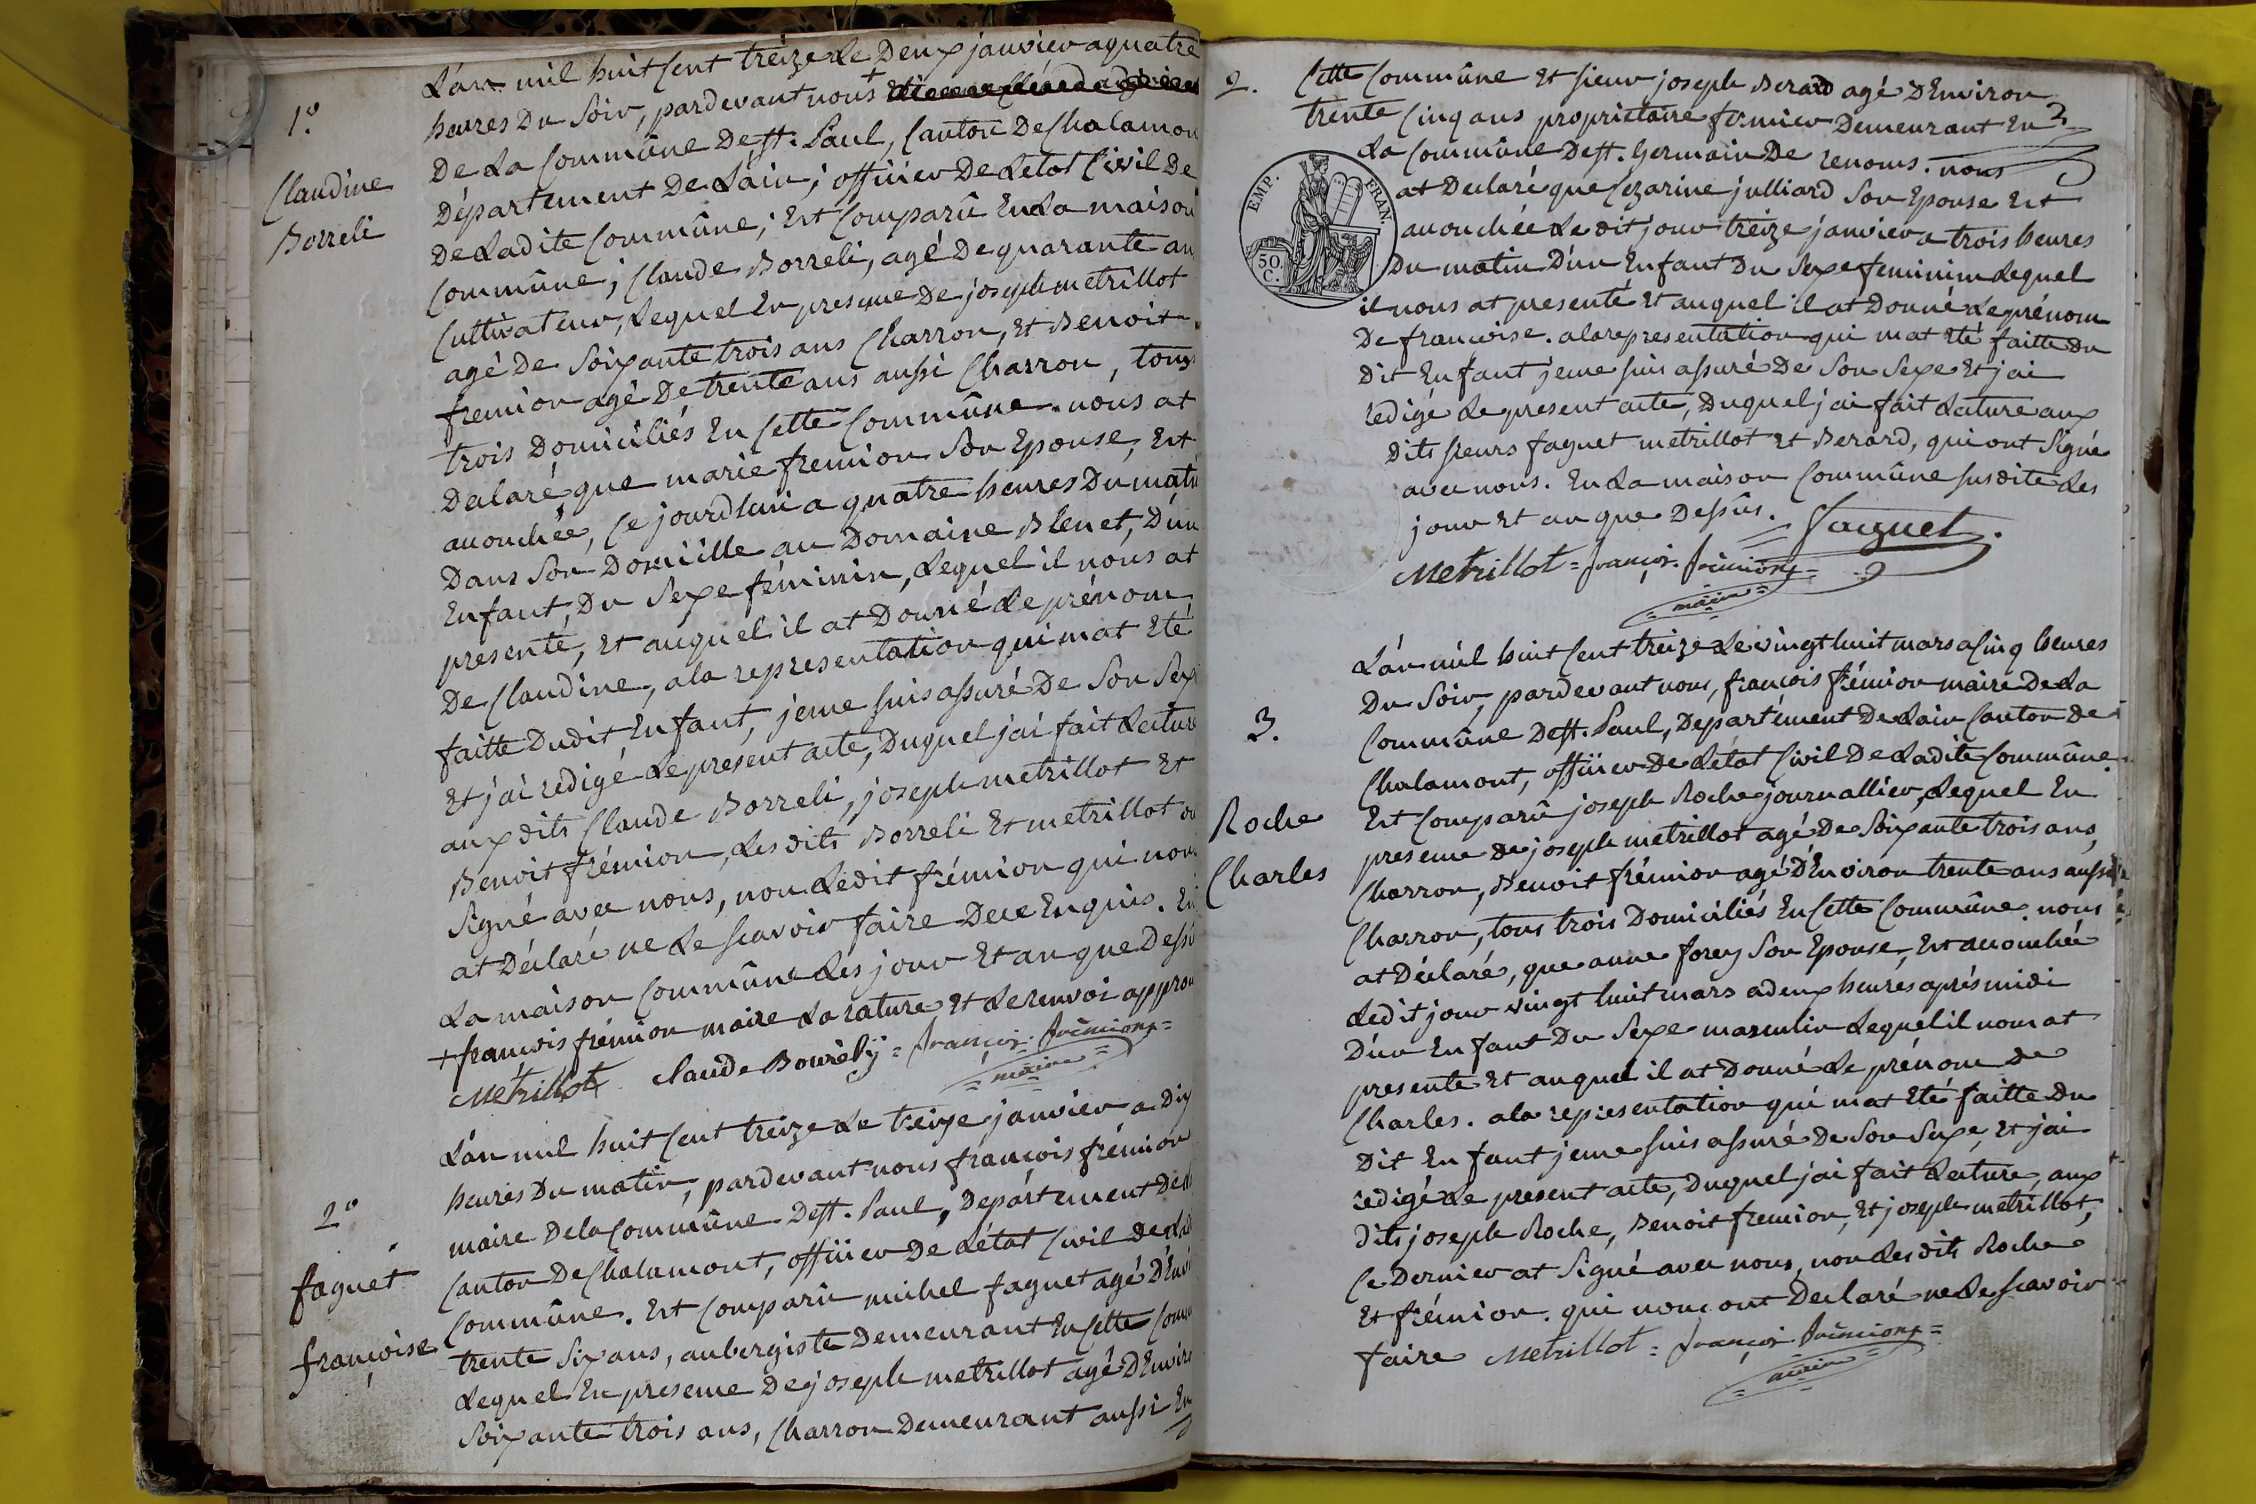 1.°
Claudine
Borreli
L'an mil huit cent treize le Deux janvier a quatre
heures Du Soir, pardevant nous +
De La Commûne De st. Paul, Canton De Chalamon
Département De L'ain, officier De L'etat Civil De
De Ladite Commûne, Est Comparû En La maison
Commûne, Claude Borreli, agé De quarante an
Cultivateur, Lequel En presence De joseph metrillot
agé De Soixante trois ans Charron, Et Benoit
fremion agé De trente ans aussi Charron, tous
trois Domiciliés En Cette Commûne. nous at
Declaré que marie fremion Son Epouse, Est
accouchée, Ce jourdhui a quatre heures Du mati
Dans Son Domicille au Domaine Blenet, D'un
Enfant, Du Sexe féminin, Lequel il nous at
presenté, Et auquel il at Donné Le prénom
De Claudine, a la representation qui mat Eté
faitte Dudit Enfant, je me suis assuré De Son Sex
Et j'ai redigé Le present acte, Duquel j'ai fait Lecture
aux dits Claude Borreli, joseph metrillot Et
Benoit frémion, Les dits Borreli Et metrillot on
Signé avec nous, non Ledit frémion qui nous
at Déclaré ne Le scavoir faire De ce Enquis. En
La maison Commûne Les jour Et an que Dessu
+ francois frémion maire La rature Et Le renvoi approu
Metrillot Claude Bourely = françois frémion =
= maire =
2°
faguet
françoise
L'an mil huit Cent treize Le treize janvier a Dix
heures Du matin, pardevant nous françois frémion
maire De la Commûne De st. Paul, Département De L
Canton De Chalamont, officier De L'état Civil De Ladi
Commûne. Est Comparû michel faguet agé D'Envi
trente Six ans, aubergiste Demeurant En Cette Comm
Lequel En presence De joseph metrillot agé D'Enviro
Soixante trois ans, Charron Demeurant aussi En
2.
Cette Commûne Et sieur joseph Berard agé D'Environ
trente Cinq ans propriétaire fermier Demeurant En
La Commûne De st. Germain De renoms. nous
EMP. FRAN.
50 C.
at Declaré que Cezarine julliard Son Epouse Est
accouchée Le dit jour treize janvier a trois heures
Du matin D'un Enfant Du Sexe feminin Lequel
il nous at presenté Et auquel il at Donné Le prénom
De francoise. a la representation qui mat Eté faitte Du
Dit Enfant je me suis assuré De Son Sexe Et j'ai
redigé Le present acte, Duquel j'ai fait Lecture aux
Dits sieurs faguet metrillot Et Berard, qui ont Signé
avec nous. En La maison Commûne susdite Les
jour Et an que Dessûs. faguet
Metrillot = françois frémion =
= maire =
3.
Roche
Charles
L'an mil huit Cent treize Le vingt huit mars a Cinq heures
Du Soir, pardevant nous, francois frémion maire De La
Commûne De st. Paul, Departement De L'ain Canton De
Chalamont, officier De L'état Civil De Ladite Commûne.
Est Comparû joseph Roche journallier, Lequel En
presence de joseph metrillot agé De Soixante trois ans,
Charron, Benoit frémion agé D'Environ trente ans aussi
Charron, tous trois Domiciliés En Cette Commûne. nous
at Déclaré, que anne forey Son Epouse, Est accouchée
Ledit jour vingt huit mars a deux heures aprés midi
D'un Enfant Du Sexe masculin Lequel il nous at
presenté Et auquel il at Donné Le prénom de
Charles. a la representation qui mat Eté faitte Du
Dit Enfant je me suis assuré De Son Sexe, Et j'ai
redigé Le present acte, Duquel j'ai fait Lecture, aux
Dits joseph Roche, Benoit fremion, Et joseph metrillot,
Ce Dernier at Signé avec nous, non Les dits Roche
Et frémion. qui nous ont Declaré ne Le scavoir
faire Metrillot = françois frémion =
= maire =